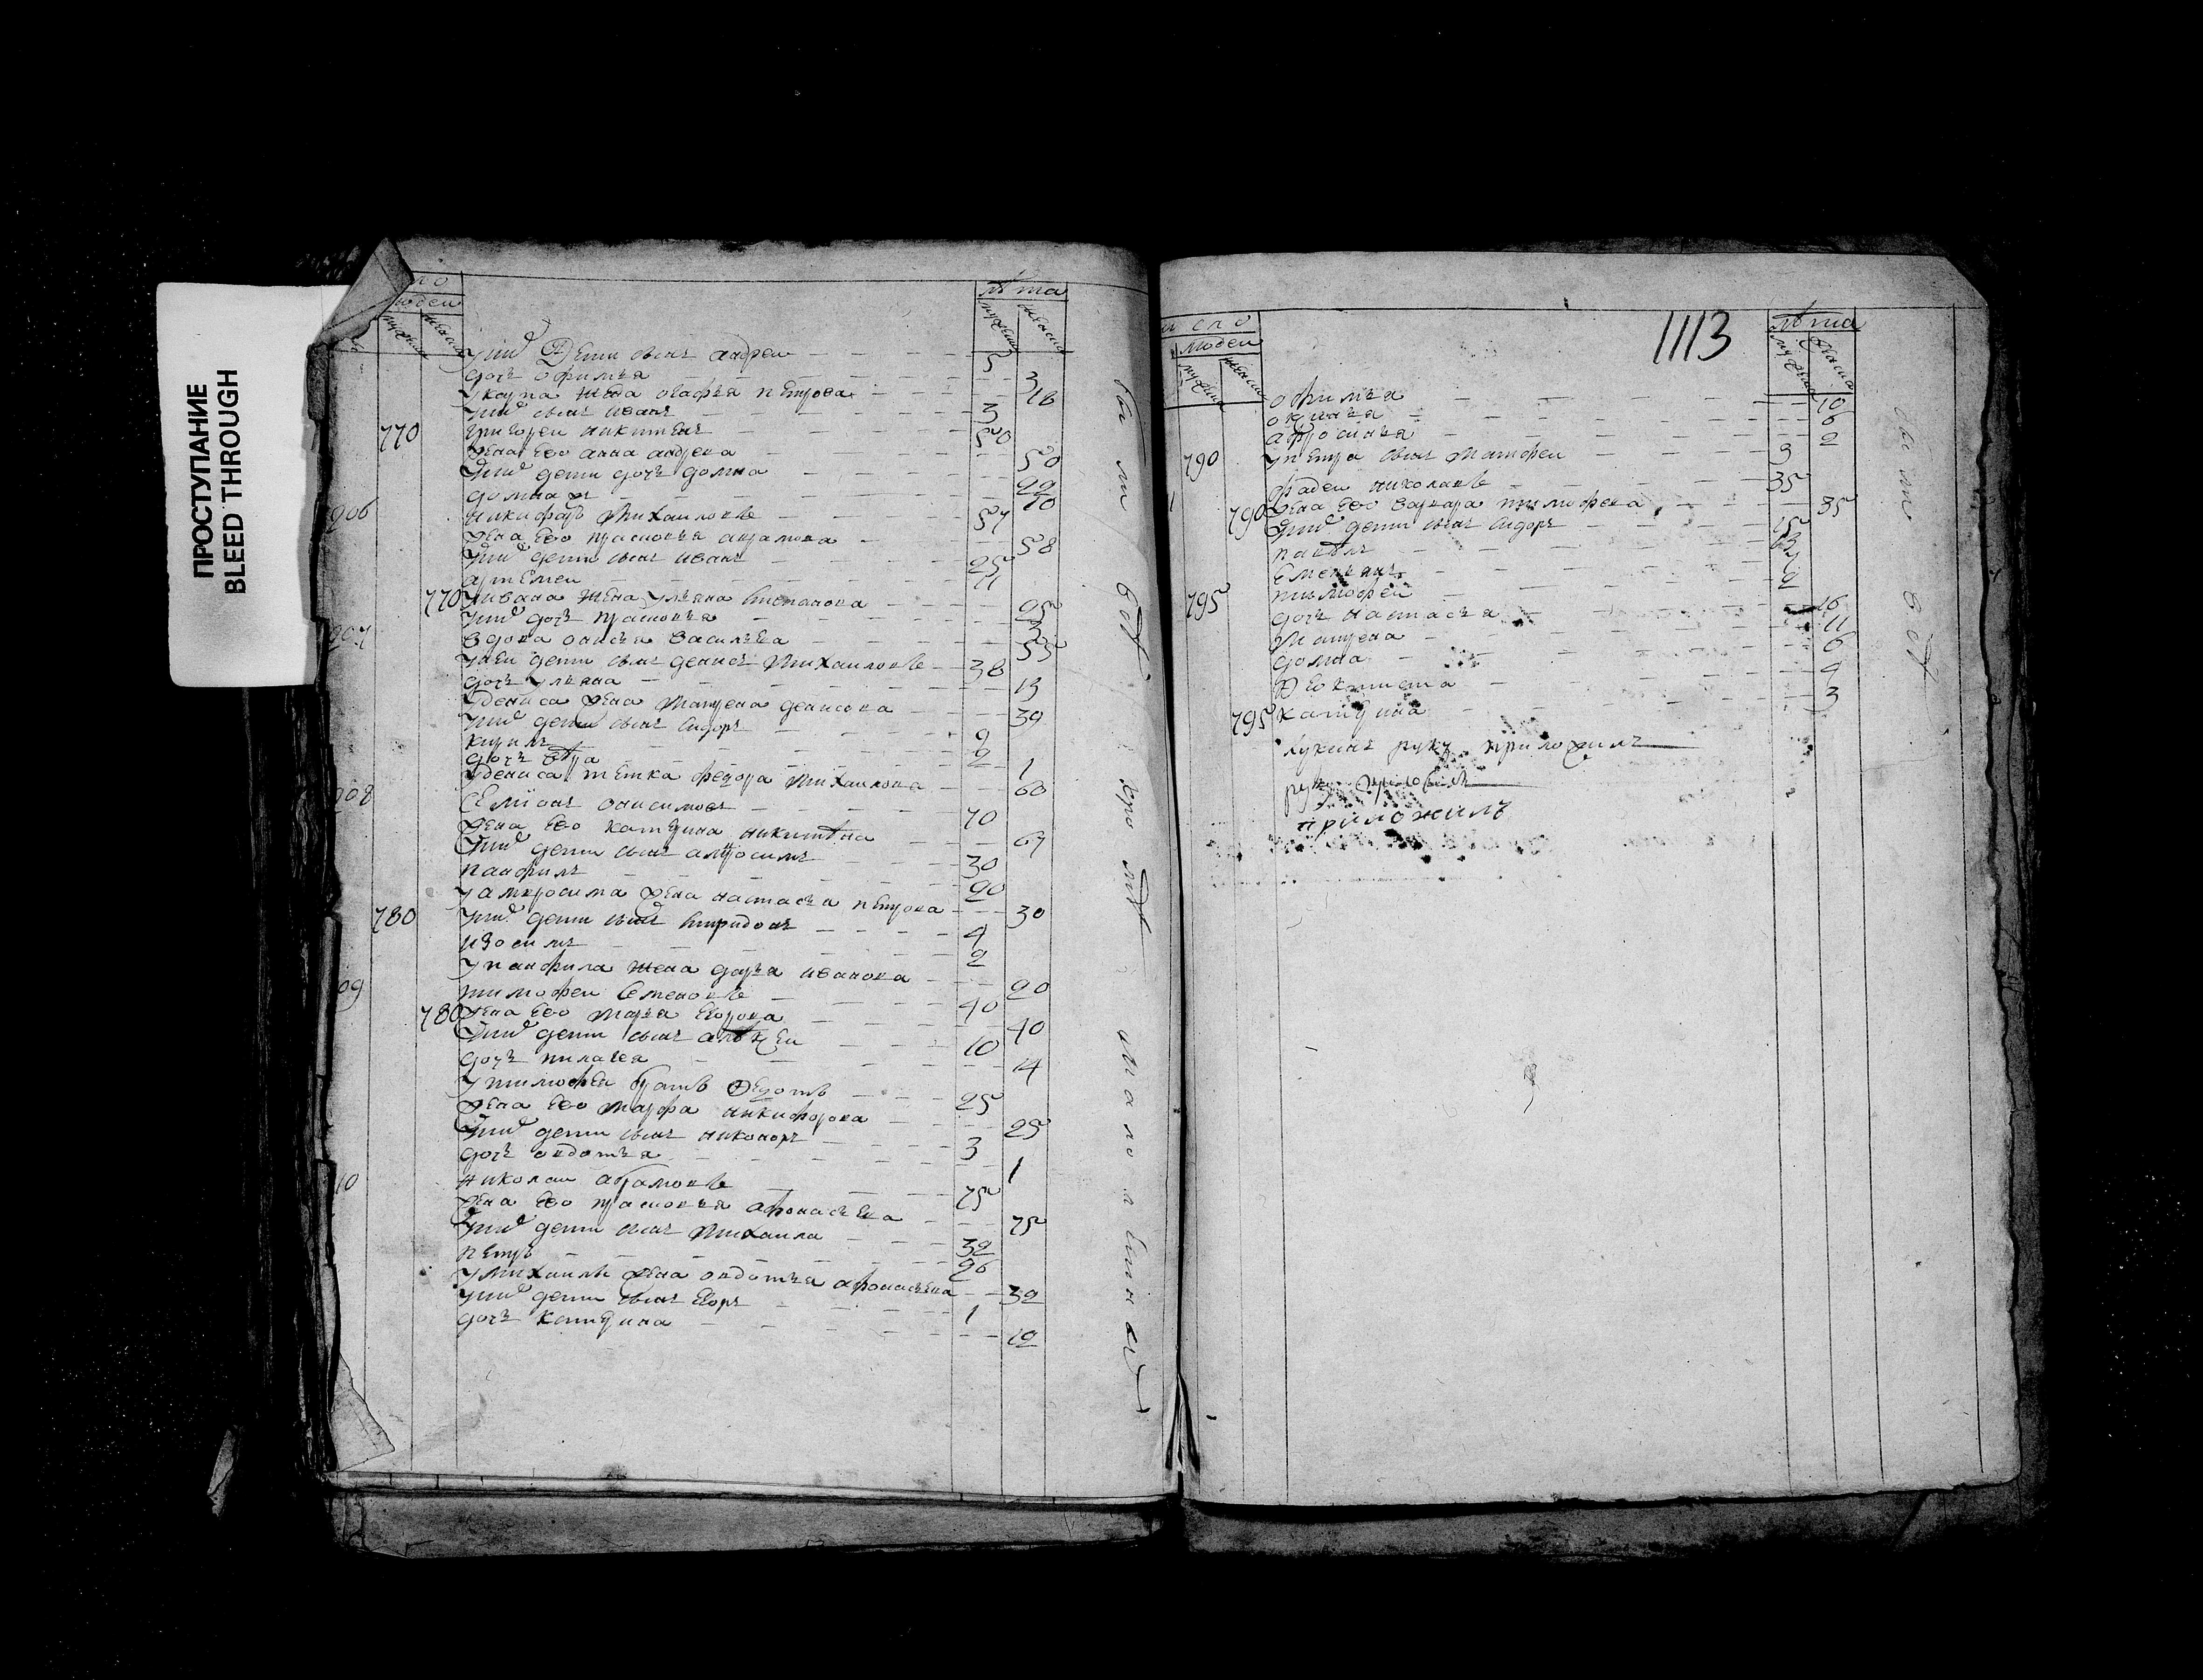 ПРОСТУПАНИЕ
BLEED THROUGH
людеи
лѣта
мужеска
женска
у нихъ дети сынъ андреи 5
дочь офимья 3
у карпа жена огафья петрова 18
у нихъ сынъ иванъ 3
770 григореи никитенъ 50
жена ево анна андреева 50
у нихъ дети дочь домна 22
домна ж 10
206 никифоръ михаиловъ 57
жена ево прасковья абрамова 58
у нихъ дети сынъ иванъ 25
артемеи 11
770 у ивана жена ульяна степанова 25
у нихъ дочь прасковья
207 вдова онисья васильева 55
у неи дети сынъ денисъ михаиловъ 38
дочь ульяна 13
у дениса жена матрена денисова 39
у нихъ дети сынъ сидоръ 9
кирилъ 2
дочь 1
у дениса тетка федора михаилова 60
208 семионъ онисимовъ 70
жена ево катерина никитина 67
у нихъ дети сынъ амбросимъ 30
панфилъ 20
у амбросима жена настасья петрова 30
780 у нихъ дети сынъ спиридонъ 4
изосимъ 2
у панфила жена дарья иванова 20
09 тимофеи семеновъ 40
780 жена ево марья егорова 40
у нихъ дети сынъ алѣксеи 10
дочь пилагея 14
у тимофея братъ федотъ 25
жена ево марфа никифорова 25
у нихъ дети сынъ никоноръ 3
дочь овдотья 1
10 николаи абрамовъ 75
жена ево прасковья афонасьева 75
у нихъ дети сынъ михаила 32
петръ 26
у михаилы жена овдотья афонасьева 32
у нихъ дети сынъ егоръ 1
дочь катерина 12
число
людеи
1113
лѣта
мужеска
женска
офимья 10
оксинья 6
афросинья 2
790 у петра сынъ матфеи 3
фадеи николаевъ 35
790 жена ево варвара тимофеева 35
у нихъ дети сынъ сидоръ 15
павелъ
емельянъ
795 тимофеи 2
дочь настасья 16
матрена 11
домна 6
феоктиста 4
795 катерина 3
лукинъ руку приложилъ
руку приложилъ
приложилъ